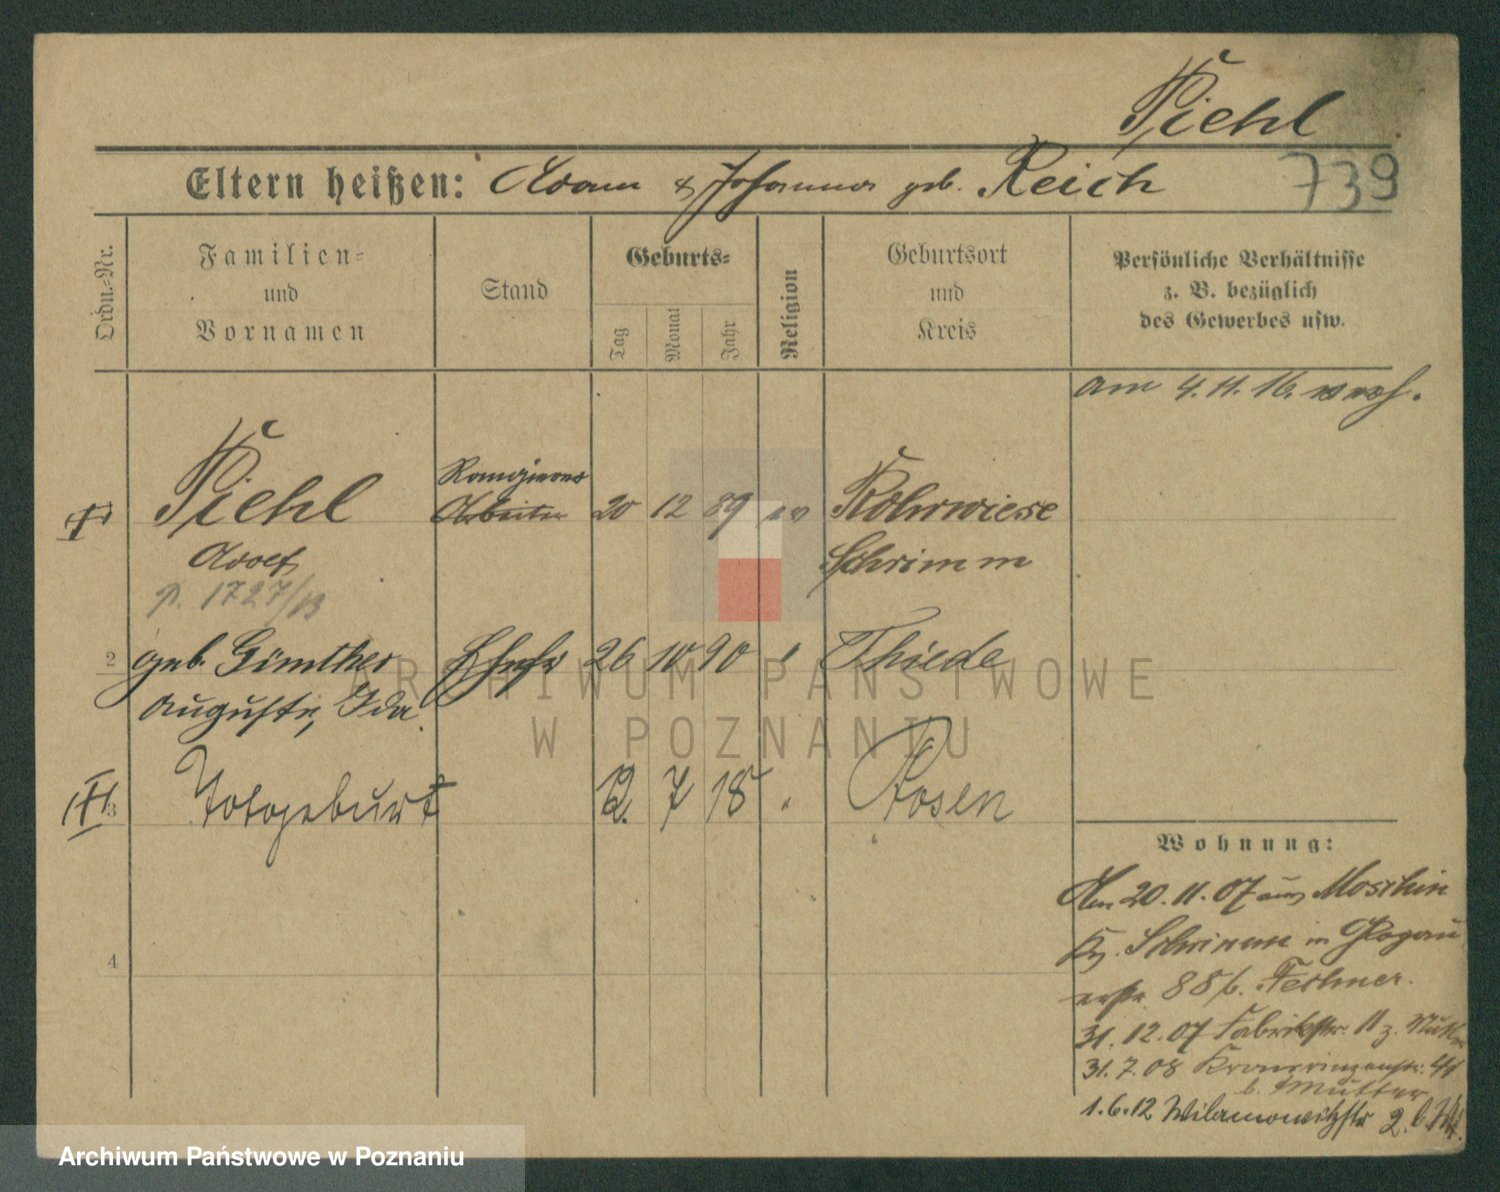 Piehl
Eltern heißen: Adam & Johanna geb. Reich
739
Ordn.-Nr.
Familien-
und
Vornamen
Stand
Geburts-
Tag
Monat
Jahr
Religion
Geburtsort
und
Kreis
Persönliche Verhältnisse
z. B. bezüglich
des Gewerbes usw.
am 4.11.16.
Piehl
Adolf
P. 1727/13
Rangierer
Arbeiter
20 12 89 ev
Rohrwiese
Schrimm
2 geb. Günther
Auguste, Ida
Ehefr 26 10 90
Thiede
3 Totgeburt
12. 7 18 "
Posen
4
Wohnung:
Am 20.11.07 aus Moschin
Kr. Schrimm in Glogau
erstr 88 b. Fechner.
31.12.07 Fabrikstr. 11 z. Mutter
31.7.08 Kronprinzenstr. 41
b. Mutter
1.6.12 Wilamowitzstr 2.
ARCHIWUM PAŃSTWOWE
W POZNANIU
Archiwum Państwowe w Poznaniu